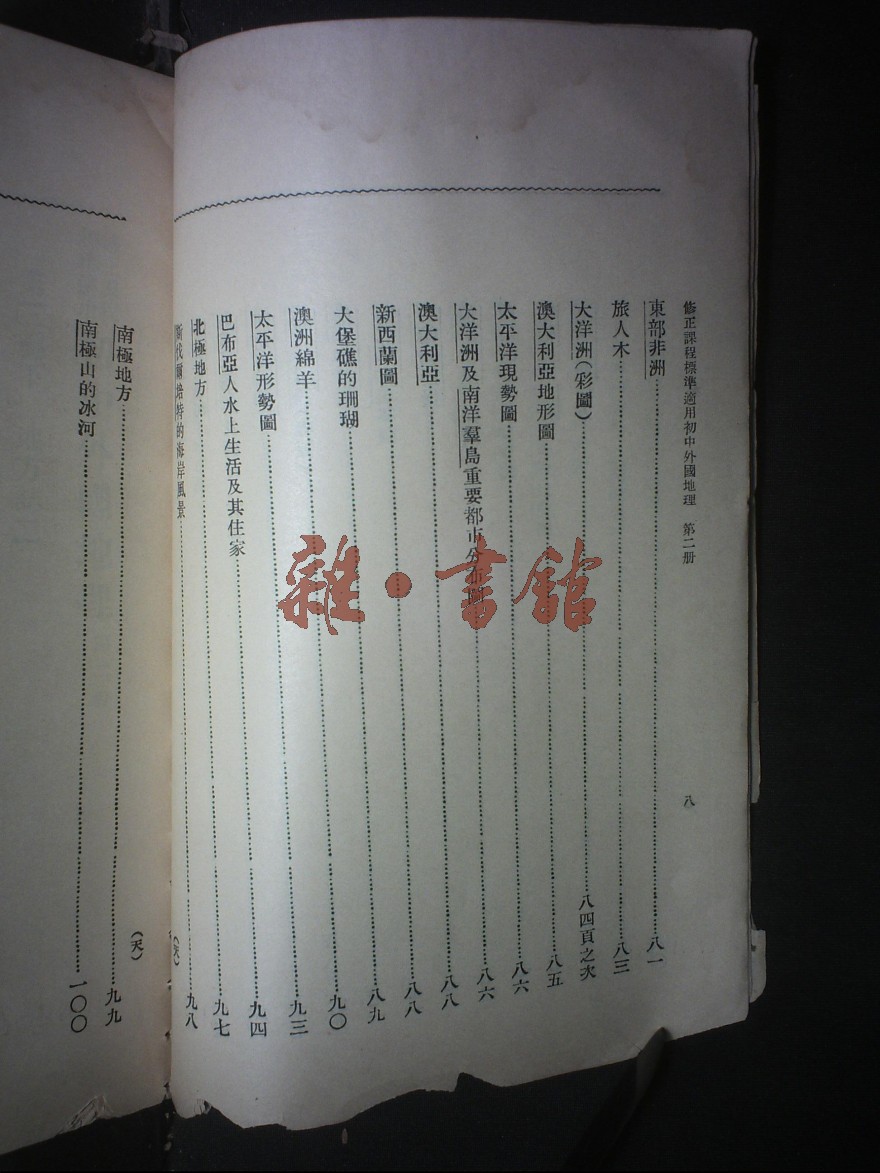 修正課程標準適用初中外國地理 第二册 八
東部非洲……八一
旅人木……八三
大洋洲(彩圖)……八四頁之次
澳大利亞地形圖……八五
太平洋現勢圖……八六
大洋洲及南洋羣島重要都市分布圖……八六
澳大利亞……八八
新西蘭圖……八八
大堡礁的珊瑚……八九
澳洲綿羊……九〇
太平洋形勢圖……九三
巴布亞人水上生活及其住家……九四
北極地方……九七
斯伐爾培特的海岸風景……九八
(天)
(天)
南極地方……九九
南極山的冰河……一〇〇
雜·書館